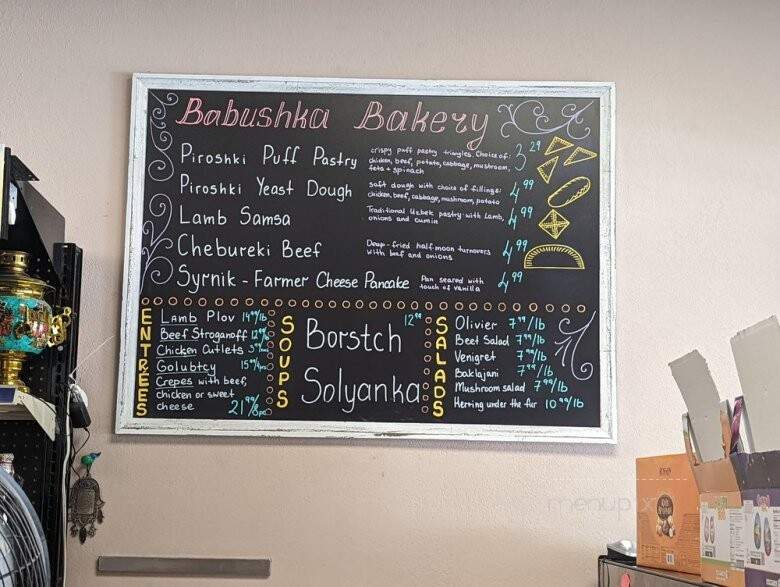 Babushka Bakery
Piroshki Puff Pastry
crispy puff pastry triangles. Choice of:
chicken, beef, potato, cabbage, mushroom,
feta + spinach
3 29
Piroshki Yeast Dough
soft dough with choice of fillings:
chicken, beef, cabbage, mushroom, potato
4 99
Lamb Samsa
Traditional Uzbek pastry with Lamb,
onions and cumin
4 99
Chebureki Beef
Deep-fried half moon turnovers
with beef and onions
4 99
Syrnik - Farmer Cheese Pancake
Pan seared with
touch of vanilla
4 99
ENTREES
Lamb Plov 14 99/lb
Beef Stroganoff
Chicken Cutlets
Golubtcy
Crepes with beef,
chicken or sweet
cheese 21 99/8pc
SOUPS
Borstch
Solyanka
SALADS
Olivier 7 99/lb
Beet Salad 7 99/lb
Venigret 7 99/lb
Baklajani 7 99/lb
Mushroom salad 7 99/lb
Herring under the fur 10 99/lb
menupix